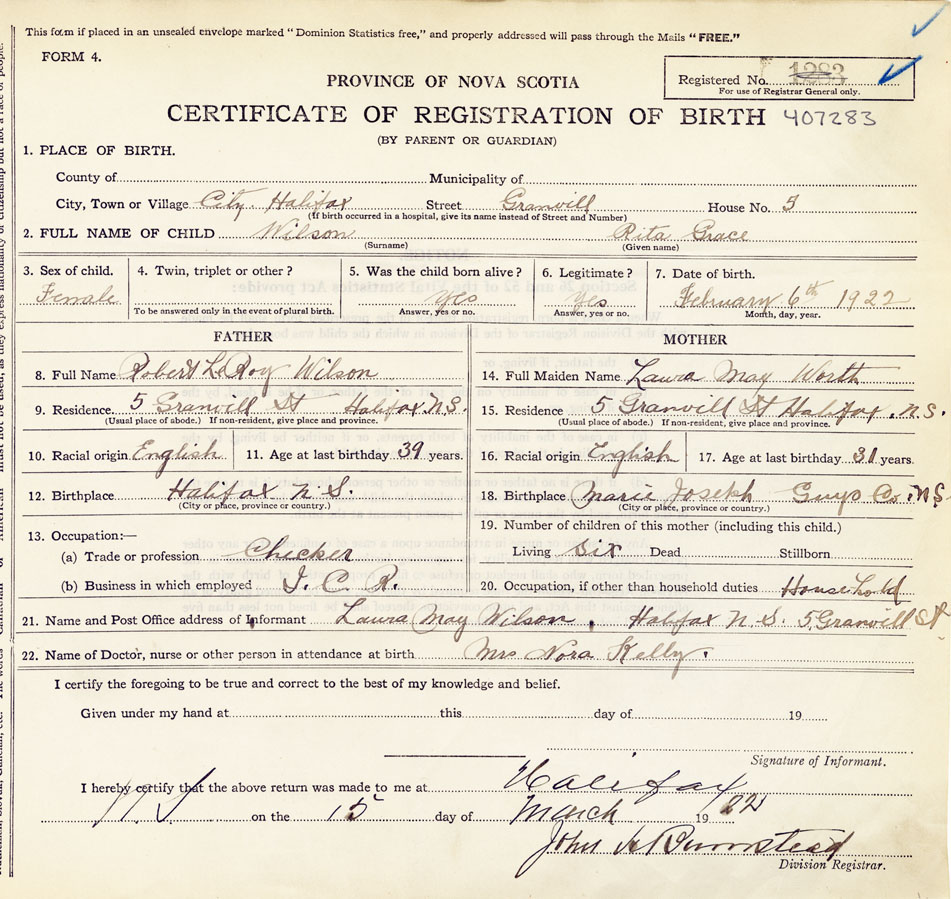 This form if placed in an unsealed envelope marked "Dominion Statistics free," and properly addressed will pass through the Mails "FREE."
FORM 4.
Registered No. 1283
For use of Registrar General only.
PROVINCE OF NOVA SCOTIA
CERTIFICATE OF REGISTRATION OF BIRTH 407283
(BY PARENT OR GUARDIAN)
1. PLACE OF BIRTH.
County of Municipality of
City, Town or Village City Halifax Street Granvill House No. 5
(If birth occurred in a hospital, give its name instead of Street and Number)
2. FULL NAME OF CHILD Wilson Rita Grace
(Surname) (Given name)
3. Sex of child. 4. Twin, triplet or other? 5. Was the child born alive? 6. Legitimate? 7. Date of birth.
Female Yes Yes February 6th 1922
To be answered only in the event of plural birth. Answer, yes or no. Answer, yes or no. Month, day, year.
FATHER MOTHER
8. Full Name Robert LeRoy Wilson 14. Full Maiden Name Laura May Worth
9. Residence 5 Granvill St Halifax N.S. 15. Residence 5 Granvill St Halifax. N.S.
(Usual place of abode.) If non-resident, give place and province. (Usual place of abode.) If non-resident, give place and province.
10. Racial origin English 11. Age at last birthday 39 years. 16. Racial origin English 17. Age at last birthday 31 years.
12. Birthplace Halifax N.S. 18. Birthplace Marie Joseph Guys Co. N.S.
(City or place, province or country.) (City or place, province or country.)
13. Occupation:— 19. Number of children of this mother (including this child.)
(a) Trade or profession Checker Living Six Dead Stillborn
(b) Business in which employed I. C. R. 20. Occupation, if other than household duties Household
21. Name and Post Office address of Informant Laura May Wilson, Halifax N.S. 5 Granvill St
22. Name of Doctor, nurse or other person in attendance at birth Mrs Nora Kelly.
I certify the foregoing to be true and correct to the best of my knowledge and belief.
Given under my hand at this day of 19
Signature of Informant.
I hereby certify that the above return was made to me at Halifax
N S on the 15 day of March 1922
John A Bumstead
Division Registrar.